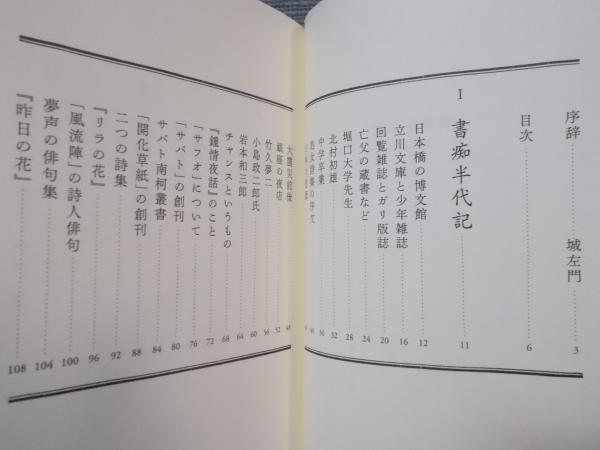 序辞 城左門 3
目次 6
Ⅰ 書痴半代記 11
日本橋の博文館 12
立川文庫と少年雑誌 16
回覧雑誌とガリ版誌 20
亡父の蔵書など 24
堀口大学先生 28
北村初雄 32
中学卒業 36
処女詩集の序文
大震災前後 48
銀座の夜店 52
竹久夢二 56
小島政二郎氏 60
岩本和三郎 64
チャンスというもの 68
『鐘情夜話』のこと 72
「サフオ」について 76
「サバト」の創刊 80
サバト南柯叢書 84
「開化草紙」の創刊 88
二つの詩集 92
『リラの花』 96
「風流陣」の詩人俳句 100
夢声の俳句集 104
『昨日の花』 108